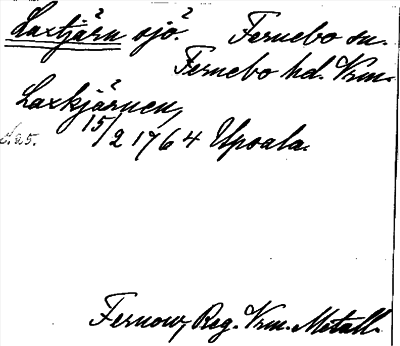 Laxtjärn sjö. Fernebo sn.
Fernebo hd. Vrm.
Laxkjärnen,
15/2 1764 Upsala.
s. 25.
Fernow, Reg. Vrm. Metall.